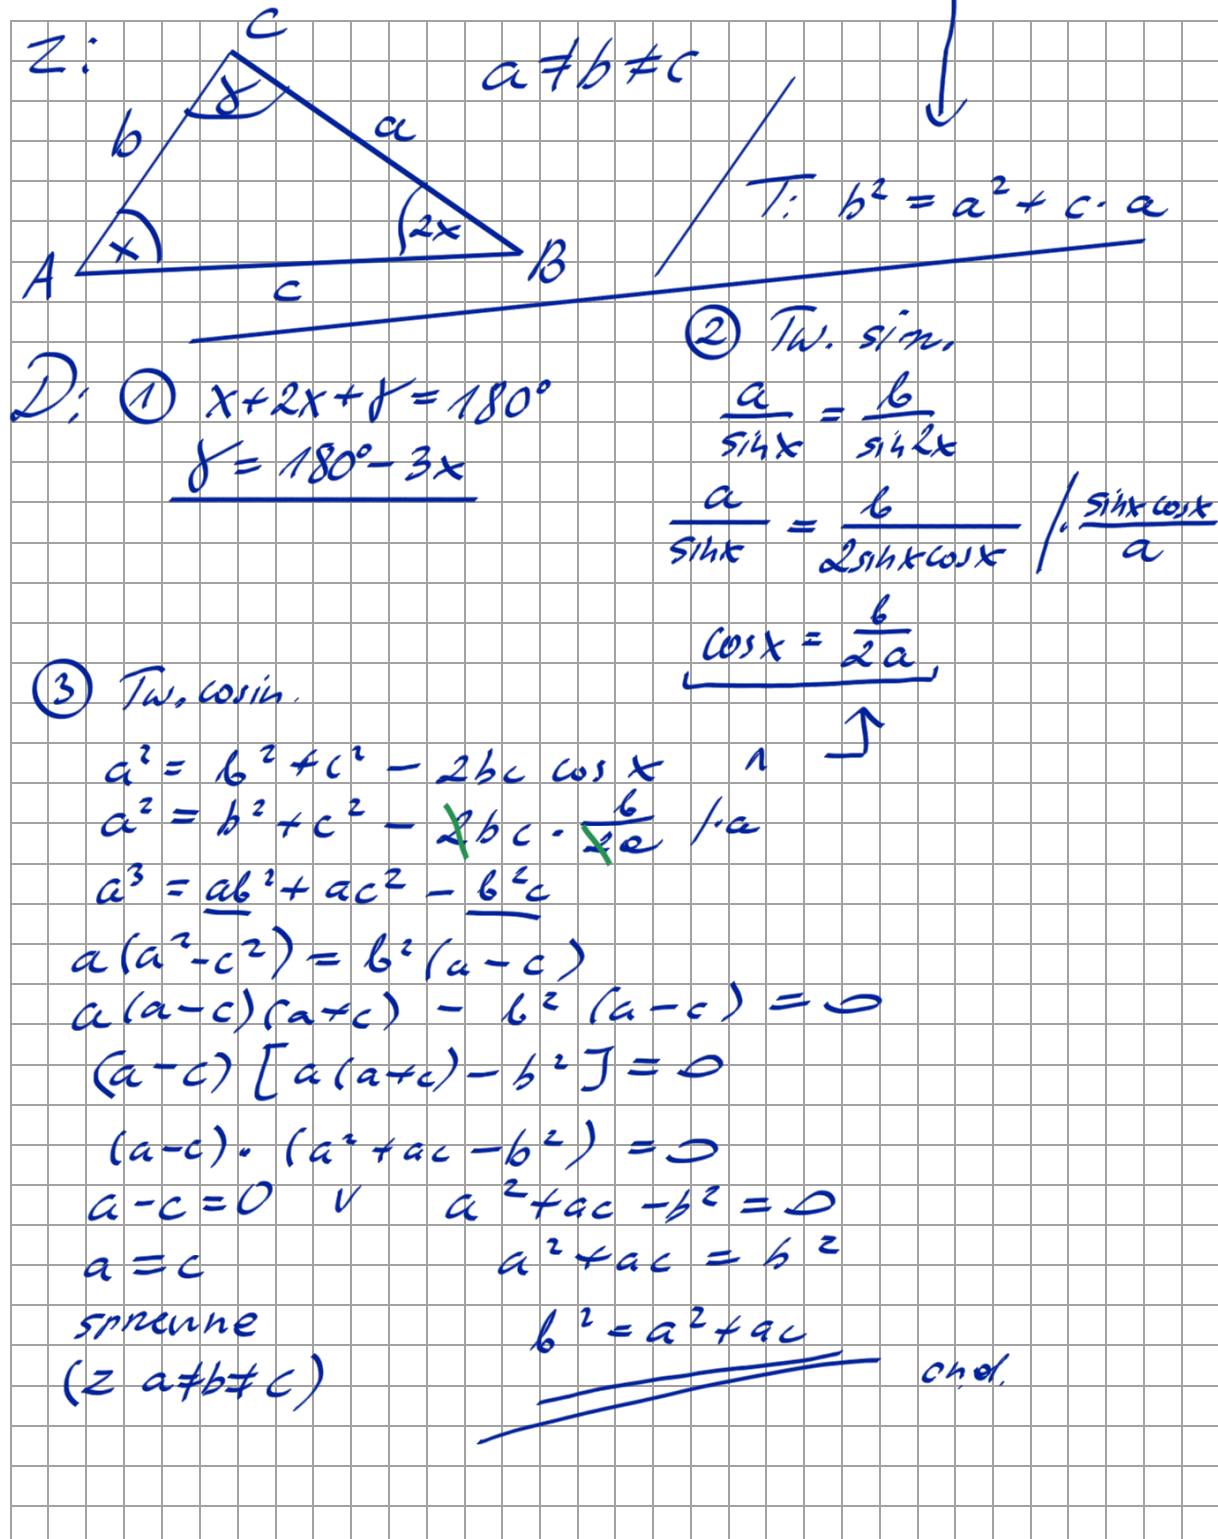 Z:
C
γ
b
a
x
2x
A
B
c
a ≠ b ≠ c
T: b² = a² + c · a
D: ① x + 2x + γ = 180°
γ = 180° - 3x
② Tw. sin.
a/sinx = b/sin2x
a/sinx = b/2sinxcosx /· sinx cosx/a
cosx = b/2a
③ Tw. cosin.
a² = b² + c² - 2bc cos x ∧
a² = b² + c² - 2bc · b/2a /·a
a³ = ab² + ac² - b²c
a(a² - c²) = b²(a - c)
a(a-c)(a+c) - b² (a-c) = 0
(a-c) [a(a+c) - b²] = 0
(a-c) · (a² + ac - b²) = 0
a - c = 0 ∨ a² + ac - b² = 0
a = c a² + ac = b²
sprzeczne b² = a² + ac
(z a ≠ b ≠ c) cnd.